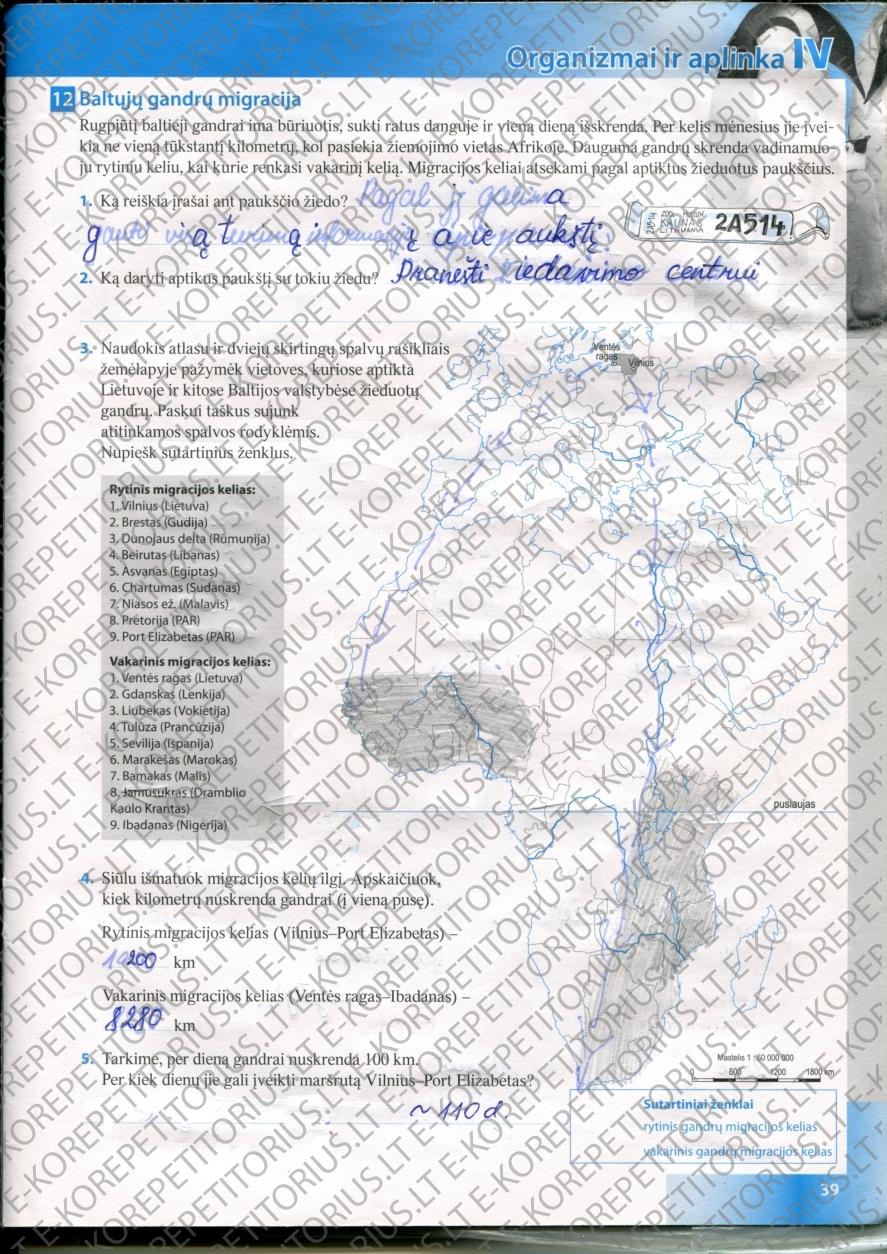 Organizmai ir aplinka IV
12 Baltųjų gandrų migracija
Rugpjūtį baltieji gandrai ima būriuotis, sukti ratus danguje ir vieną dieną išskrenda. Per kelis mėnesius jie įvei-
kia ne vieną tūkstantį kilometrų, kol pasiekia žiemojimo vietas Afrikoje. Dauguma gandrų skrenda vadinamuo-
ju rytiniu keliu, kai kurie renkasi vakarinį kelią. Migracijos keliai atsekami pagal aptiktus žieduotus paukščius.
1. Ką reiškia įrašai ant paukščio žiedo? Pagal jį galima
gauti visą turimą informaciją apie paukštį.
ZOOL. MUSEUM
KAUNAS
LITHUANIA
2A514
2A514
2. Ką daryti aptikus paukštį su tokiu žiedu? Pranešti žiedavimo centrui
3. Naudokis atlasu ir dviejų skirtingų spalvų rašikliais
žemėlapyje pažymėk vietoves, kuriose aptikta
Lietuvoje ir kitose Baltijos valstybėse žieduotų
gandrų. Paskui taškus sujunk
atitinkamos spalvos rodyklėmis.
Nupiešk sutartinius ženklus.
Ventės
ragas
Vilnius
Rytinis migracijos kelias:
1. Vilnius (Lietuva)
2. Brestas (Gudija)
3. Dunojaus delta (Rumunija)
4. Beirutas (Libanas)
5. Asvanas (Egiptas)
6. Chartumas (Sudanas)
7. Niasos ež. (Malavis)
8. Pretorija (PAR)
9. Port Elizabetas (PAR)
Vakarinis migracijos kelias:
1. Ventės ragas (Lietuva)
2. Gdanskas (Lenkija)
3. Liubekas (Vokietija)
4. Tulūza (Prancūzija)
5. Sevilija (Ispanija)
6. Marakešas (Marokas)
7. Bamakas (Malis)
8. Jamusukras (Dramblio
Kaulo Krantas)
9. Ibadanas (Nigerija)
pusiaujas
4. Siūlu išmatuok migracijos kelių ilgį. Apskaičiuok,
kiek kilometrų nuskrenda gandrai (į vieną pusę).
Rytinis migracijos kelias (Vilnius–Port Elizabetas) –
km
Vakarinis migracijos kelias (Ventės ragas–Ibadanas) –
8280 km
5. Tarkime, per dieną gandrai nuskrenda 100 km.
Per kiek dienų jie gali įveikti maršrutą Vilnius–Port Elizabetas?
~ 110 d.
Mastelis 1 : 60 000 000
0 600 1200 1800 km
Sutartiniai ženklai
rytinis gandrų migracijos kelias
vakarinis gandrų migracijos kelias
39
E-KOREPETITORIUS.LT